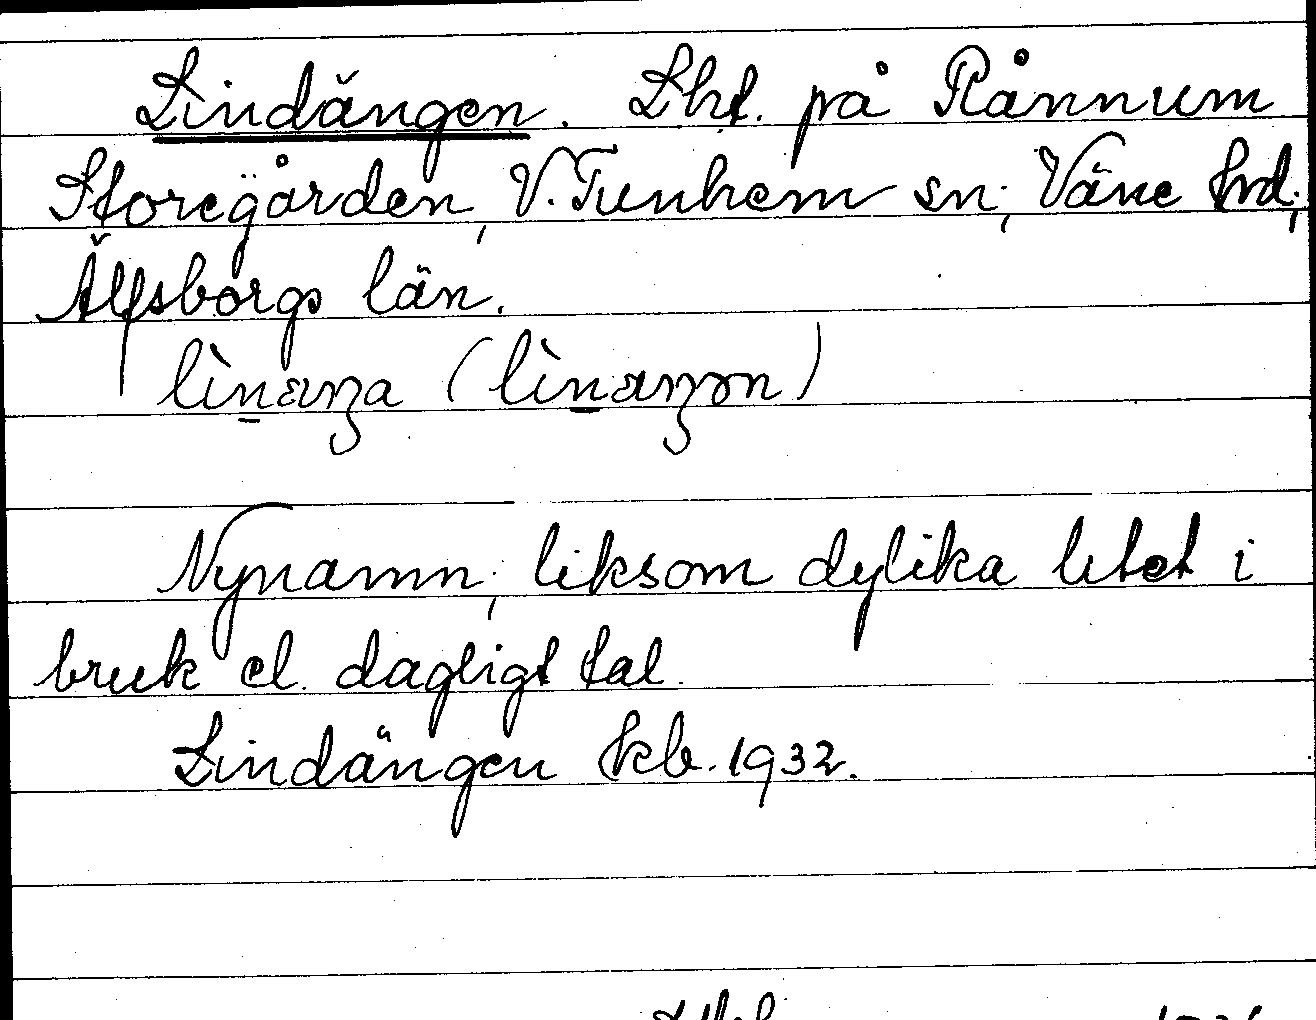 Lindängen. Lht. på Rånnum
Storegården, V. Tunhem sn; Väne hrd;
Älfsborgs län.
Nynamn; liksom dylika litet i
bruk el. dagligt tal.
Lindängen kb. 1932.